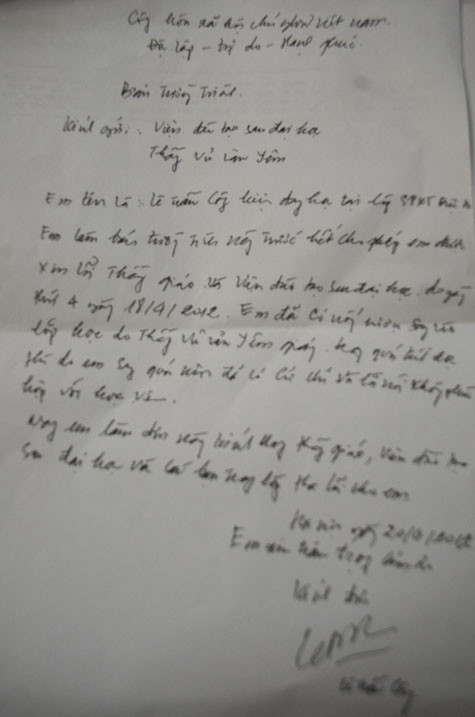 Cộng hòa xã hội chủ nghĩa việt nam.
Độc lập - tự do - Hạnh phúc.
Bản Tường Trình.
Kính gửi: Viện đào tạo sau đại học
Thầy Vũ Văn Yêm
Em tên là: Lê Tuấn Công hiện đang học tại lớp SPKT
Em làm bản tường trình này trước hết cho phép em được
xin lỗi Thầy giáo và Viện đào tạo sau đại học. do ngày
thứ 4 ngày 18/4/2012. Em đã có uống rượu say vào
lớp học do Thầy Vũ Văn Yêm giảng. Trong quá trình học
do em say quá nên đã có cử chỉ và lời nói không phù
hợp với học viên.
Nay em làm đơn này kính mong thầy giáo, Viện đào tạo
sau đại học và các bạn trong lớp tha lỗi cho em
Hà nội ngày 20/4/2012
Em xin trân trọng cảm ơn
Kính đơn
Lê Tuấn Công